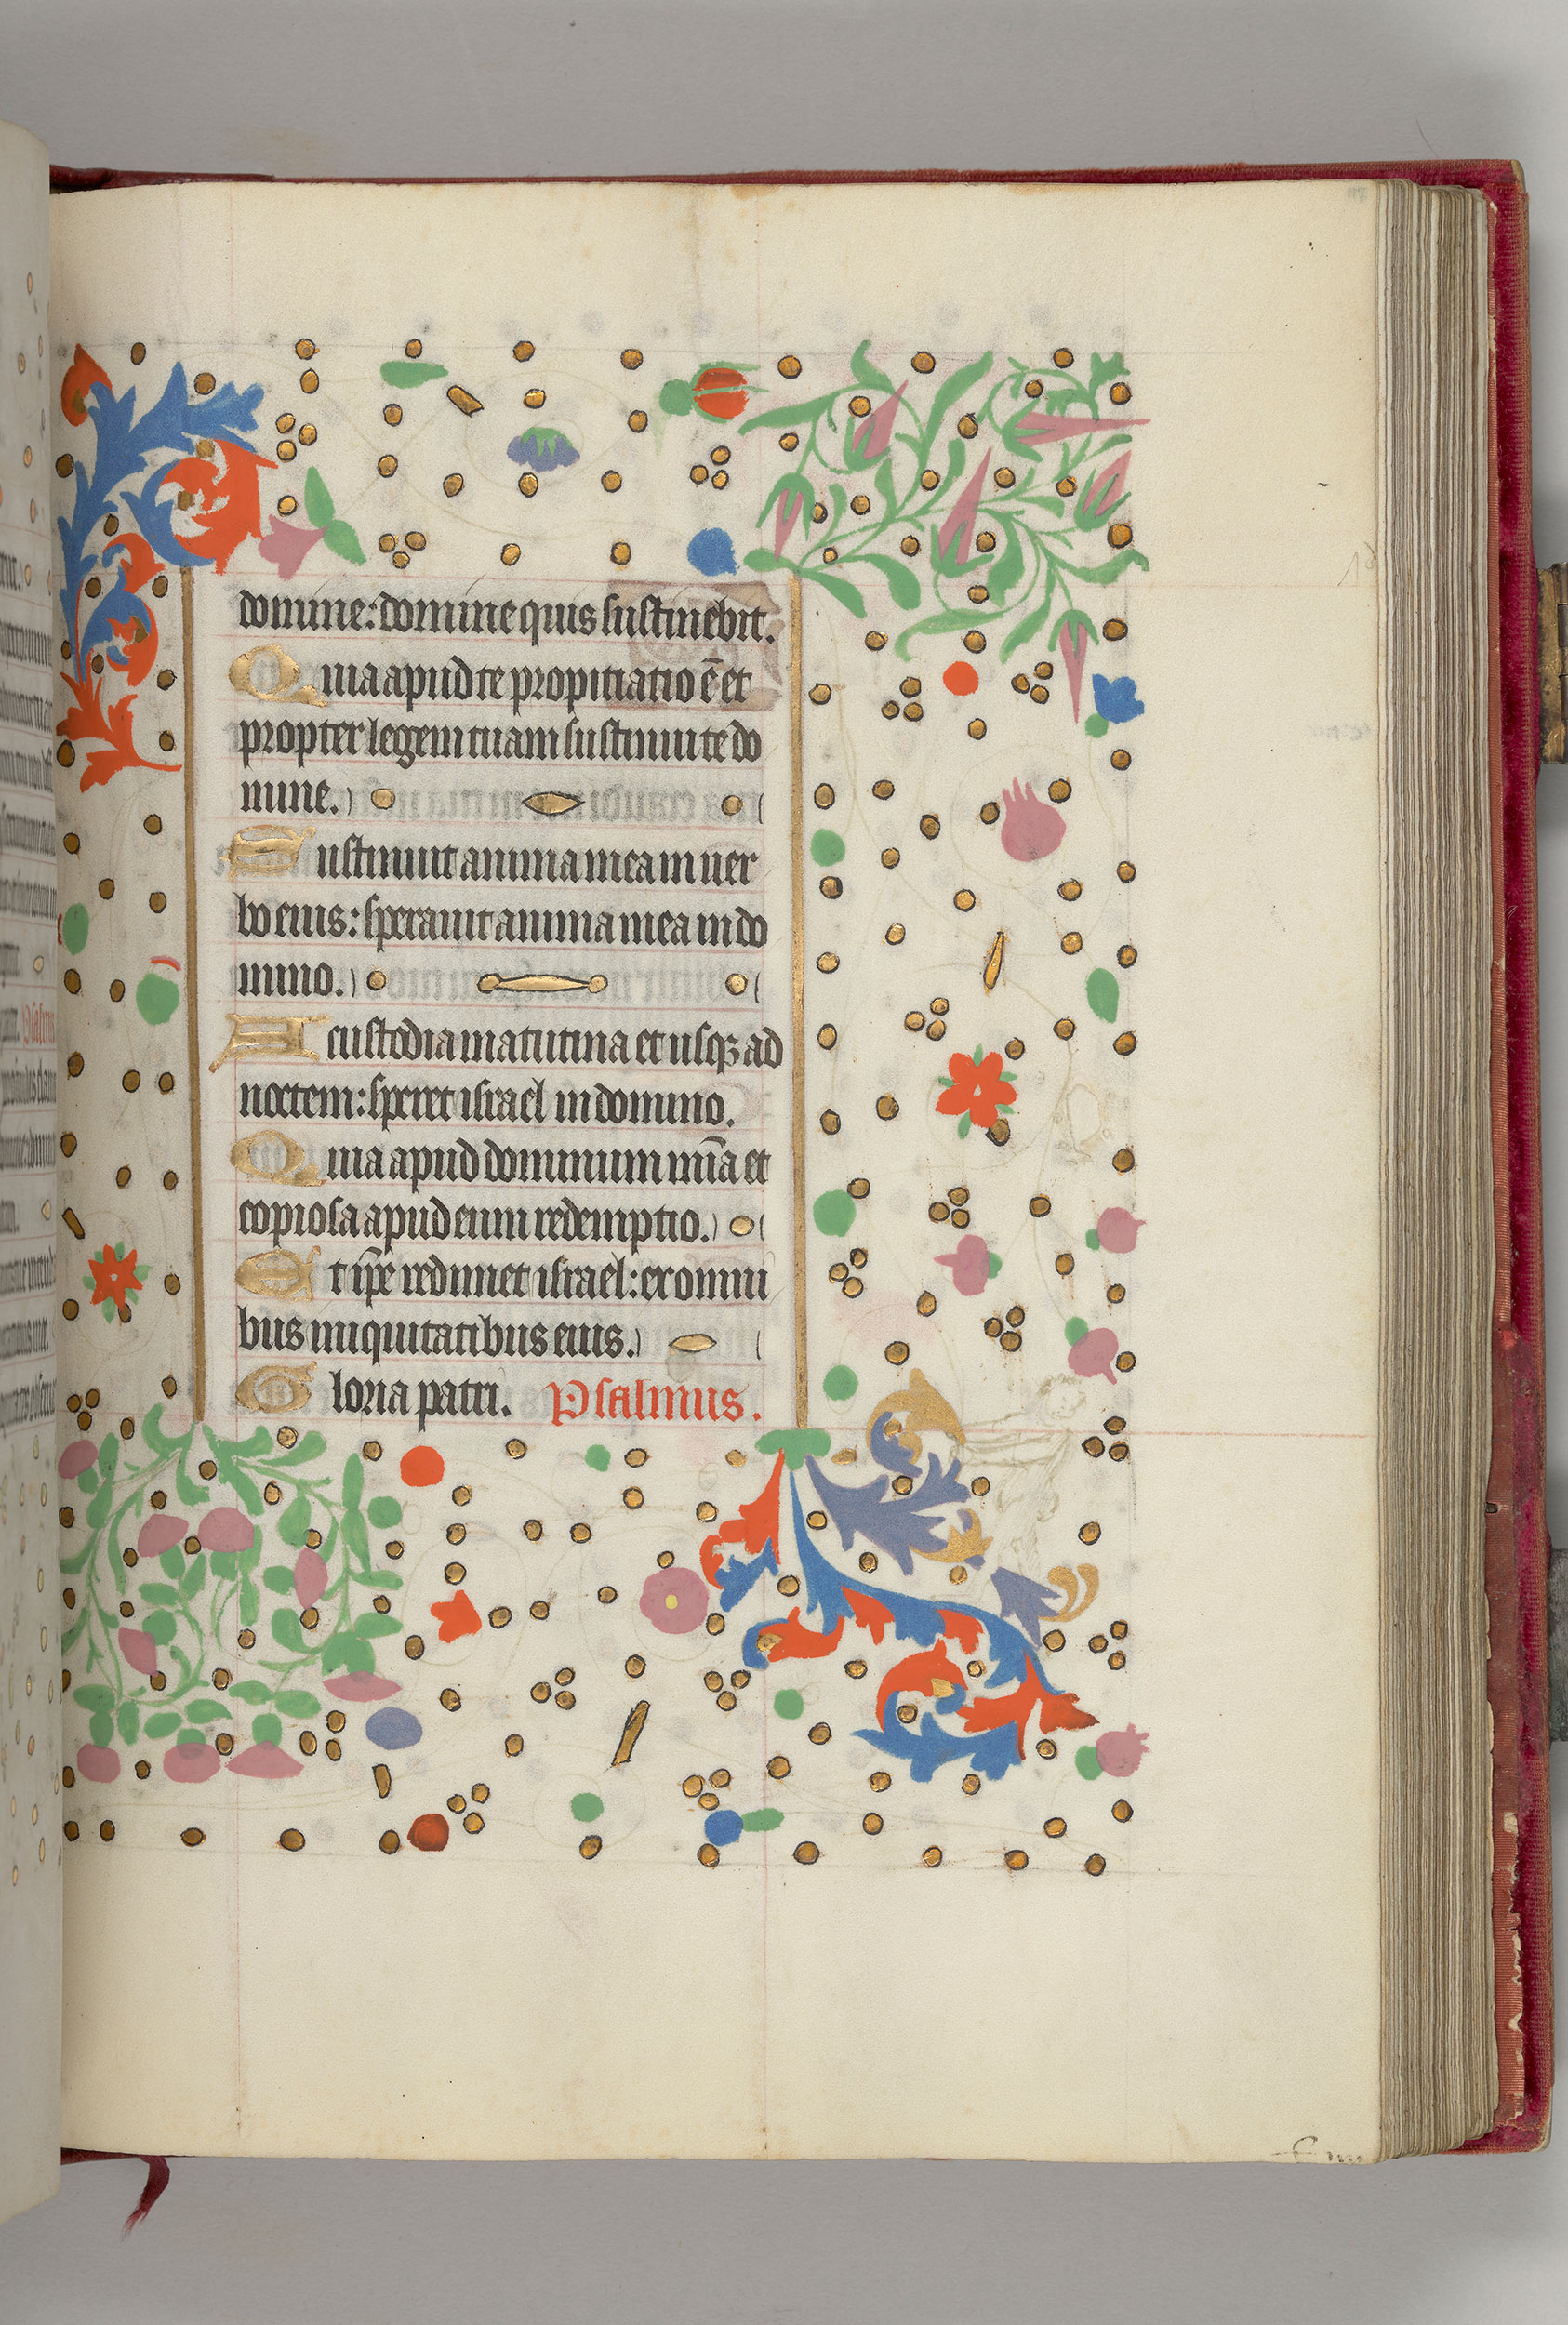 domine: domine quis sustinebit.
Quia apud te propitiatio ē et
propter legem tuam sustinui te do
mine.
Sustinuit anima mea in uer
bo eius: sperauit anima mea in do
mino.
A custodia matutina et usqꝫ ad
noctem: speret israel in domino.
Quia apud dominum mīa et
copiosa apud eum redemptio.
Et ip̄e redimet israel: ex omni
bus iniquitatibus eius.
Gloria patri. Psalmus.